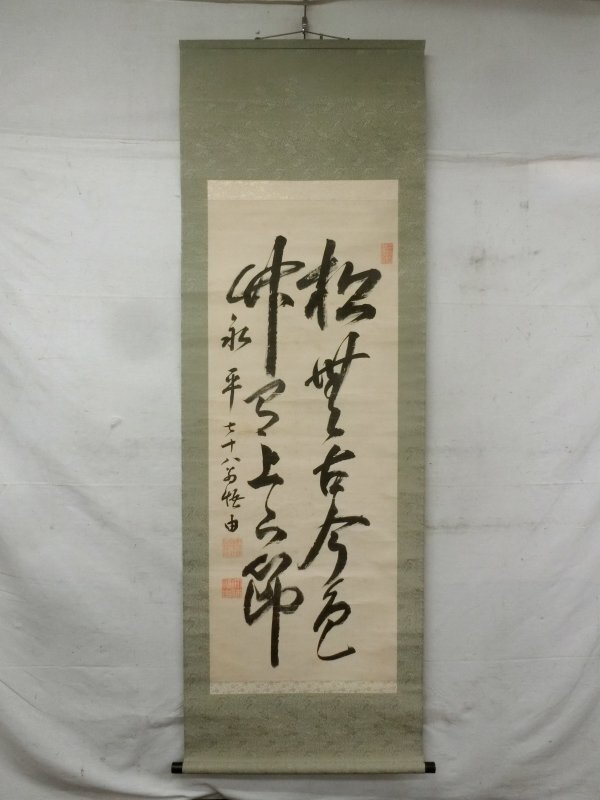 松無古今色
竹有上下節
永平七十八翁悟由